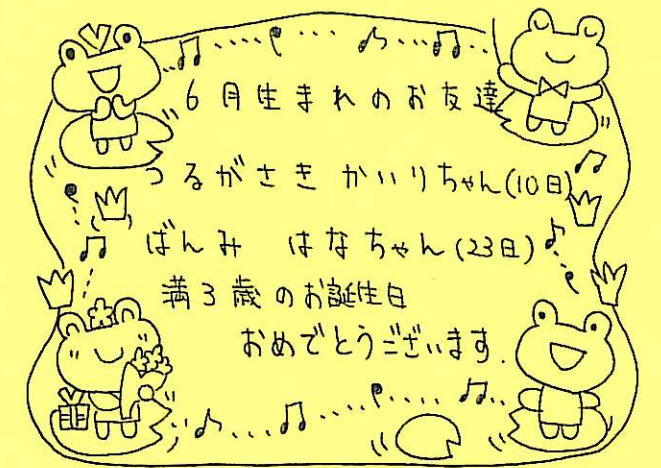 6月生まれのお友達
つるがさき かいりちゃん(10日)
ばんみ はなちゃん(23日)
満3歳のお誕生日
おめでとうございます.